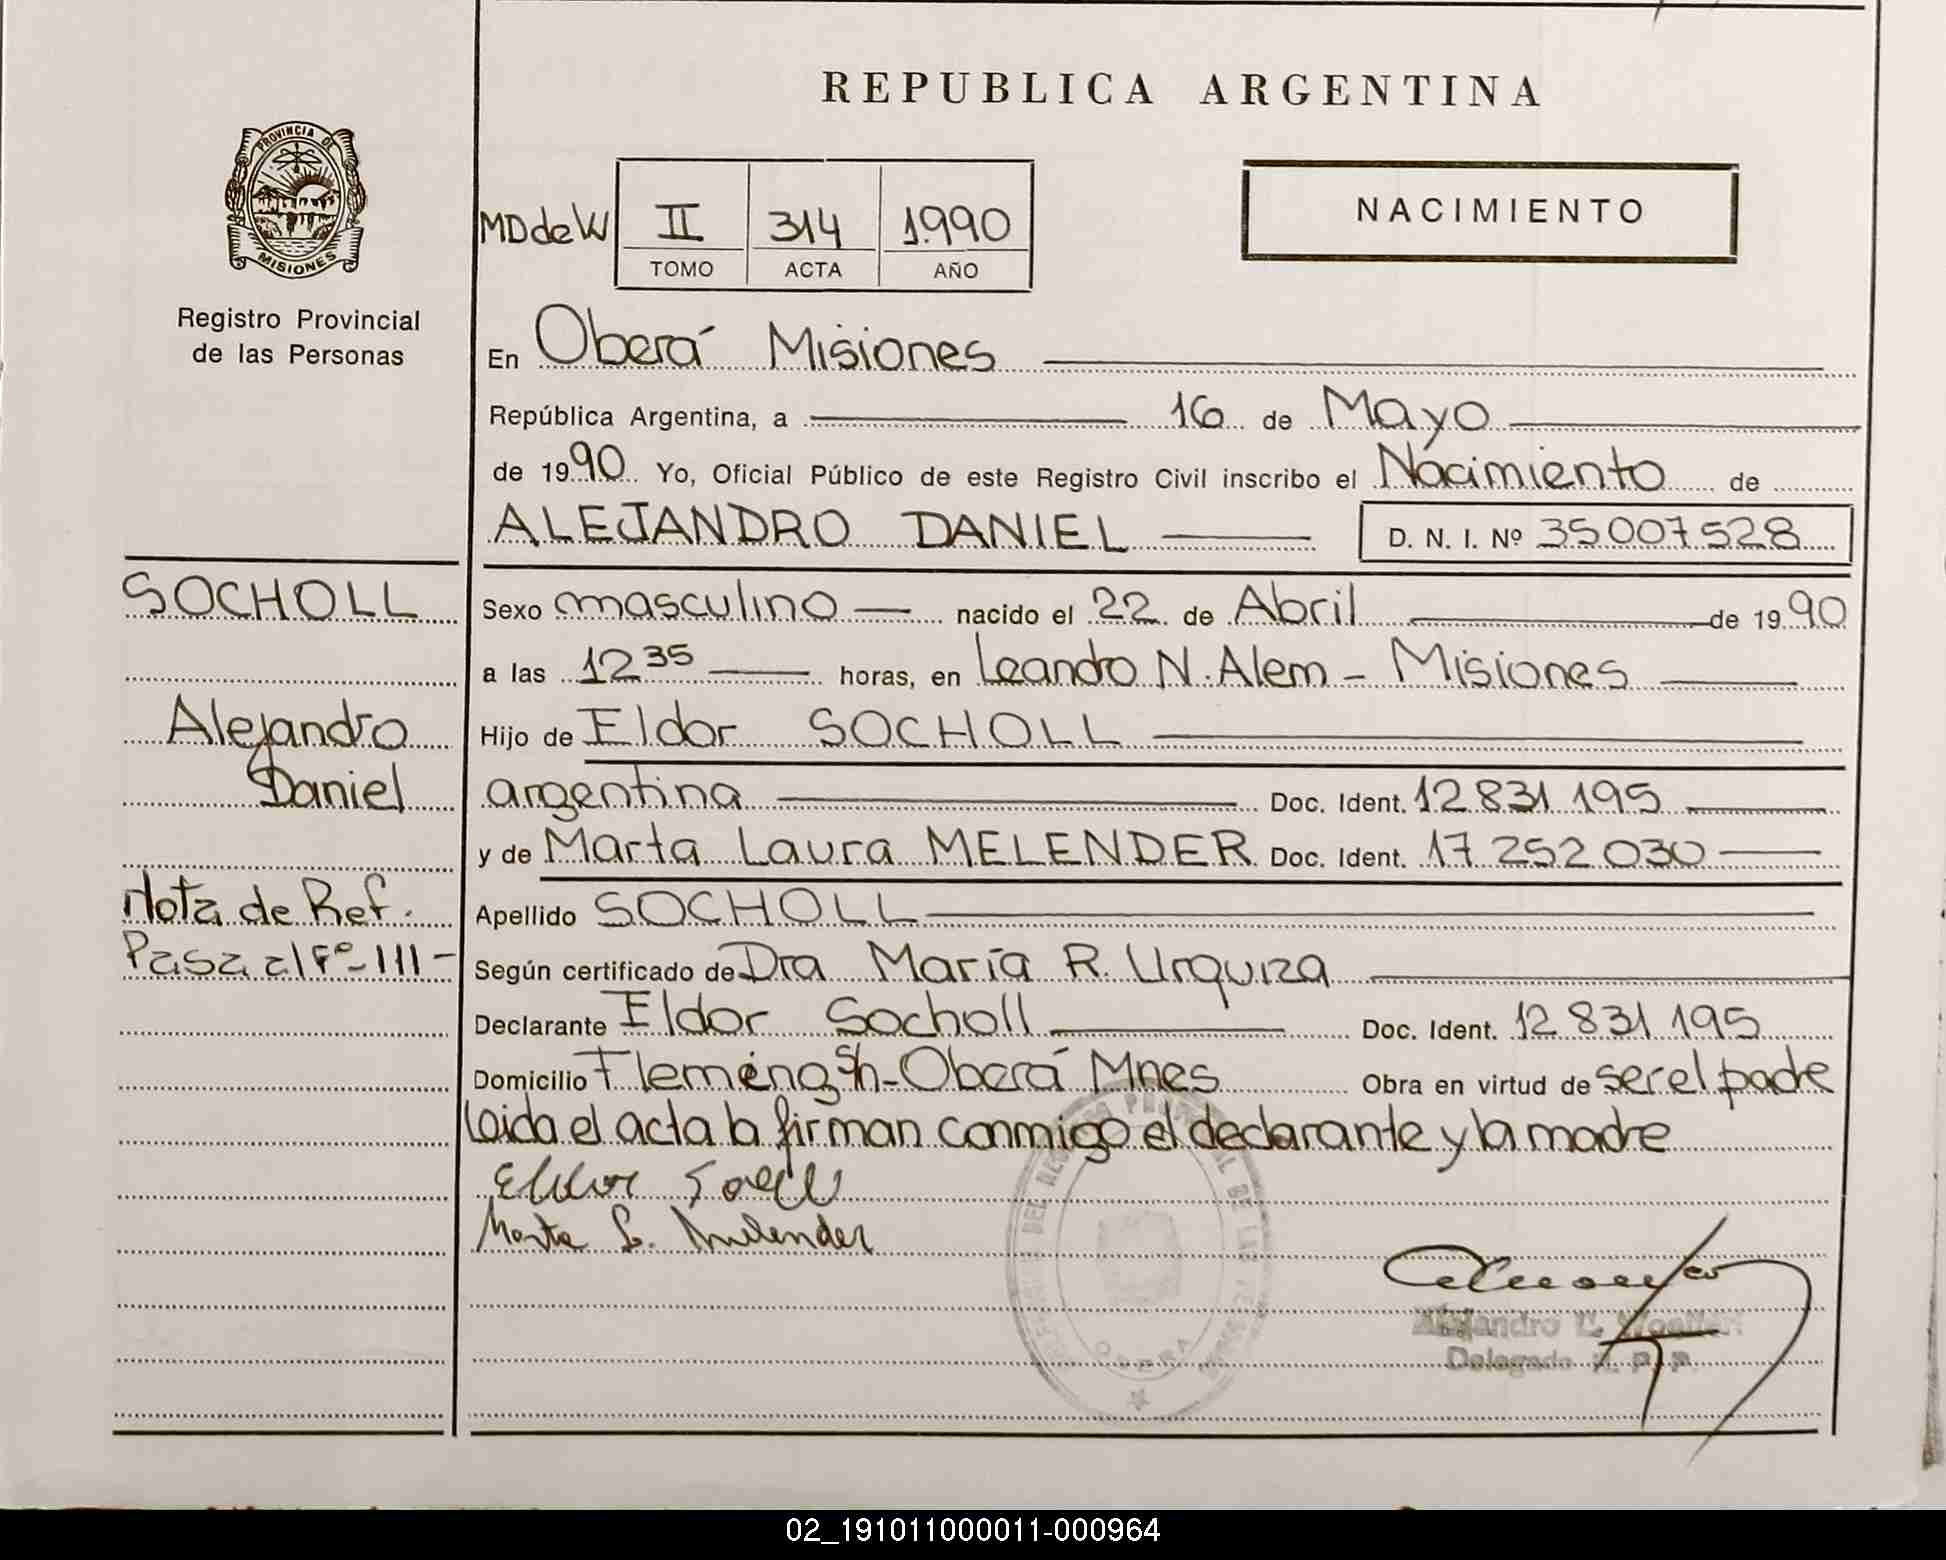 REPUBLICA ARGENTINA
PROVINCIA DE
MISIONES
Registro Provincial
de las Personas
NACIMIENTO
MD de W II 314 1.990
TOMO ACTA AÑO
En Oberá Misiones
República Argentina, a 16 de Mayo
de 1990 Yo, Oficial Público de este Registro Civil inscribo el Nacimiento de
ALEJANDRO DANIEL D. N. I. Nº 35007528
SOCHOLL
Alejandro
Daniel
Nota de Ref.
Pasa al Fº III-
Sexo masculino nacido el 22 de Abril de 1990
a las 12 35 horas, en Leandro N. Alem - Misiones
Hijo de Eldor SOCHOLL
argentina Doc. Ident. 12 831 195
y de Marta Laura MELENDER Doc. Ident. 17 252 030
Apellido SOCHOLL
Según certificado de Dra María R. Urquiza
Declarante Eldor Socholl Doc. Ident. 12 831 195
Domicilio Fleming S/n - Oberá Mnes Obra en virtud de ser el padre
Leida el acta la firman conmigo el declarante y la madre
Marta L. Melender
OBERA
Alejandro
Delegado R. P. P.
02_191011000011-000964